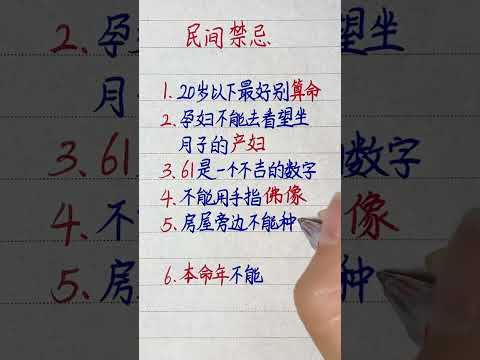 民间禁忌
1.20岁以下最好别算命
2.孕妇不能去看望坐
月子的产妇
3.61是一个不吉的数字
4.不能用手指佛像
5.房屋旁边不能种
6.本命年不能
2.孕妇
望坐
月子
3.61
数字
4.不
像
5.房
种